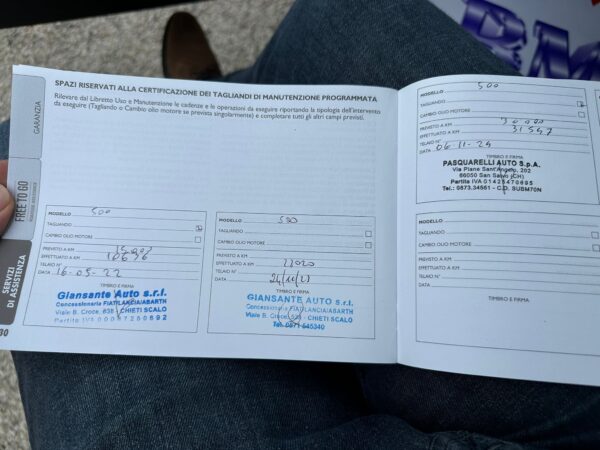 SPAZI RISERVATI ALLA CERTIFICAZIONE DEI TAGLIANDI DI MANUTENZIONE PROGRAMMATA
Rilevare dal Libretto Uso e Manutenzione le cadenze e le operazioni da eseguire riportando la tipologia dell'intervento
da eseguire (Tagliando o Cambio olio motore se prevista singolarmente) e completare tutti gli altri campi previsti.
GARANZIA
FREE TO GO
SERVIZI
DI ASSISTENZA
30
MODELLO 500
TAGLIANDO
CAMBIO OLIO MOTORE
PREVISTO A KM
EFFETTUATO A KM
TELAIO N°
DATA 16-05-22
TIMBRO E FIRMA
Giansante Auto s.r.l.
Concessionaria FIAT/LANCIA/ABARTH
Viale B. Croce, 638 - CHIETI SCALO
MODELLO 500
TAGLIANDO
CAMBIO OLIO MOTORE
PREVISTO A KM
EFFETTUATO A KM
TELAIO N°
DATA
TIMBRO E FIRMA
GIANSANTE AUTO S.r.l.
Concessionaria FIAT/LANCIA/ABARTH
Viale B. Croce, - CHIETI SCALO
Tel. 0871 545340
MODELLO 500
TAGLIANDO
CAMBIO OLIO MOTORE
PREVISTO A KM 30 000
EFFETTUATO A KM 31547
TELAIO N°
DATA 06-11-24
TIMBRO E FIRMA
PASQUARELLI AUTO S.p.A.
Via Piane Sant'Angelo, 202
66050 San Salvo (CH)
Partita IVA 01425470695
Tel. 0873.34561 - C.D. SUBM70N
MODELLO
TAGLIANDO
CAMBIO OLIO MOTORE
PREVISTO A KM
EFFETTUATO A KM
TELAIO N°
DATA
TIMBRO E FIRMA